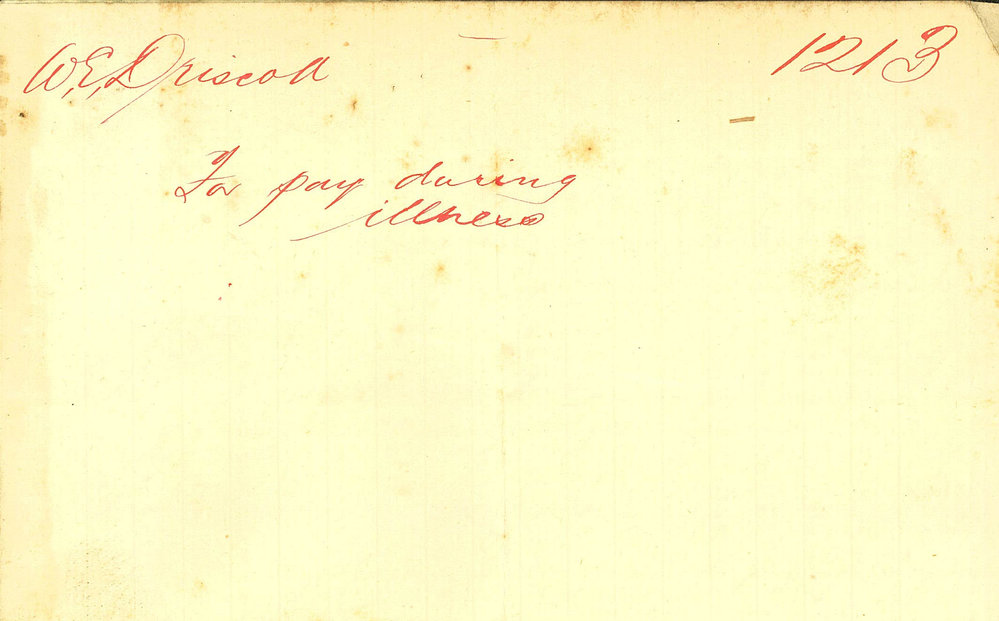 W.E. Driscoll
1213
For pay during
illness